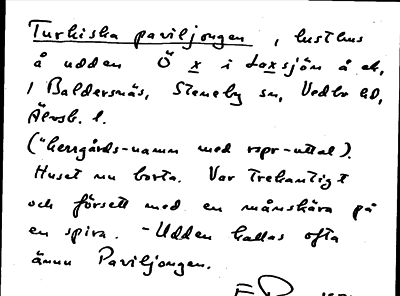 Turkiska paviljongen, lusthus
å udden Ö x i Laxsjön å ek,
1 Baldersnäs, Steneby sn, Vedbo hd,
Älvsb. l.
("herrgårds-namn med rspr-uttal).
Huset nu borta. Var trekantigt
och försett med en månskära på
en spira. - Udden kallas ofta
ännu Paviljongen.